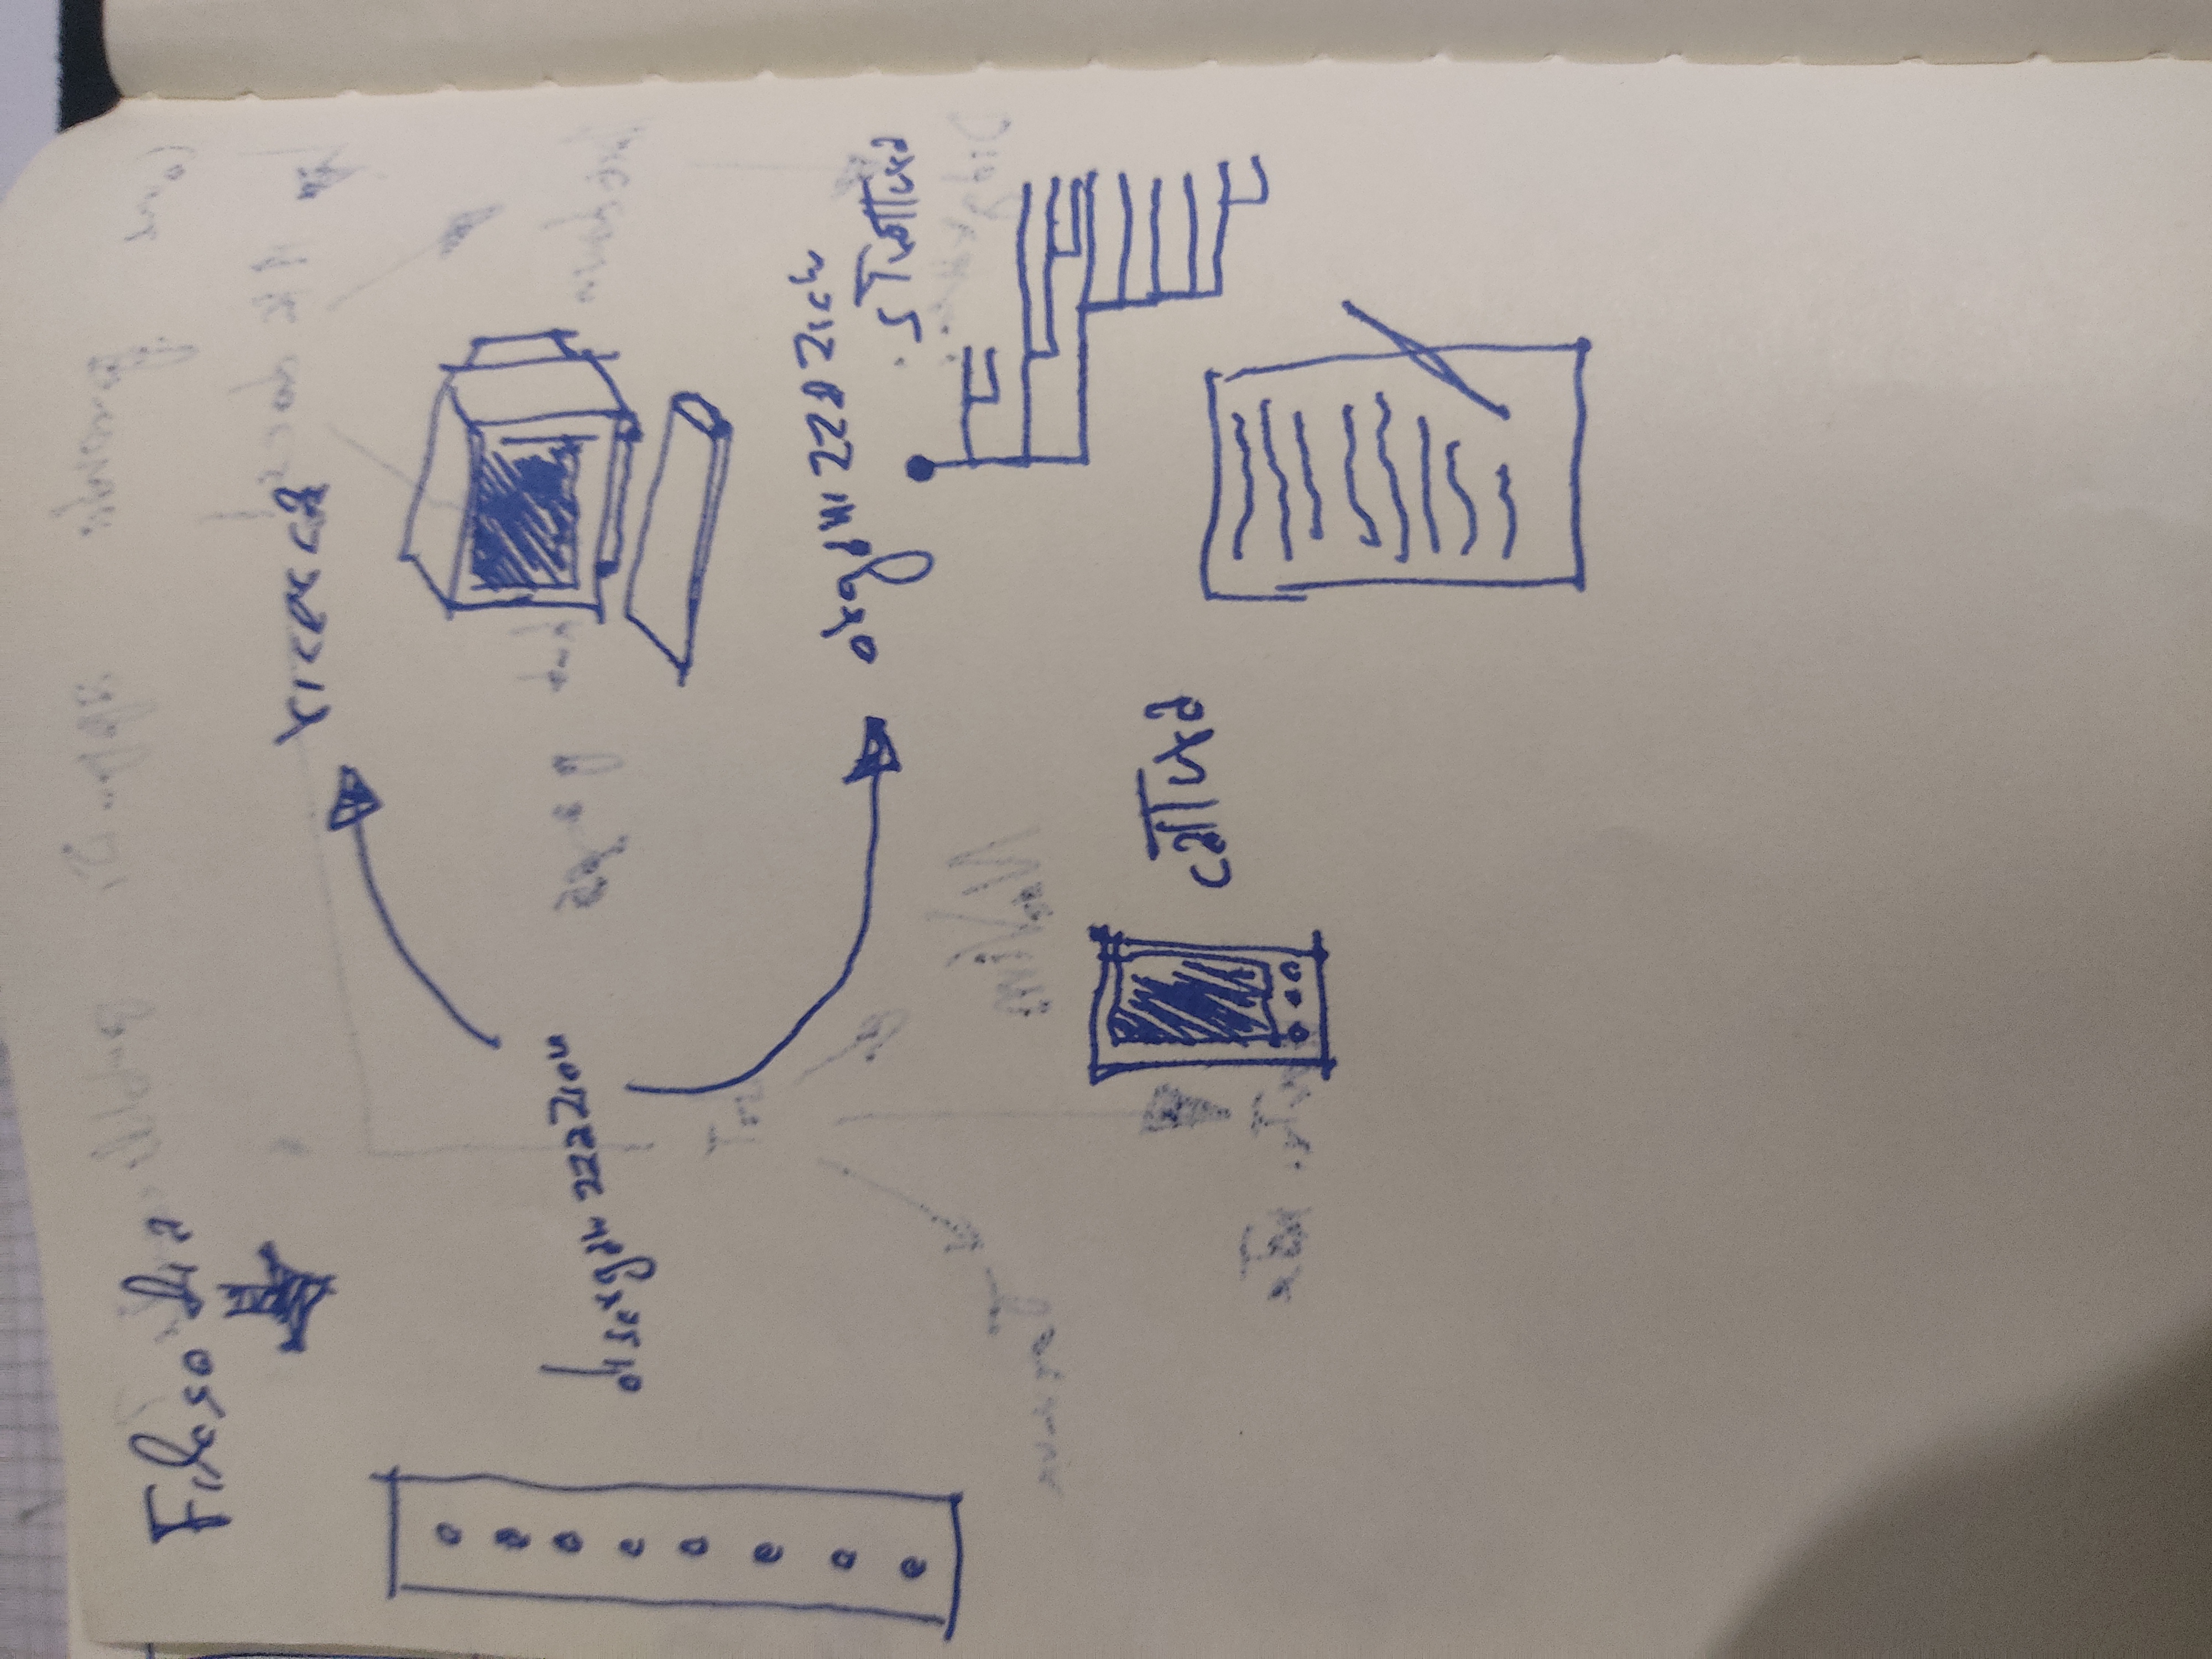 Filosofia
ricerca
disorganizzazion
organizzazion
struttura
cattura